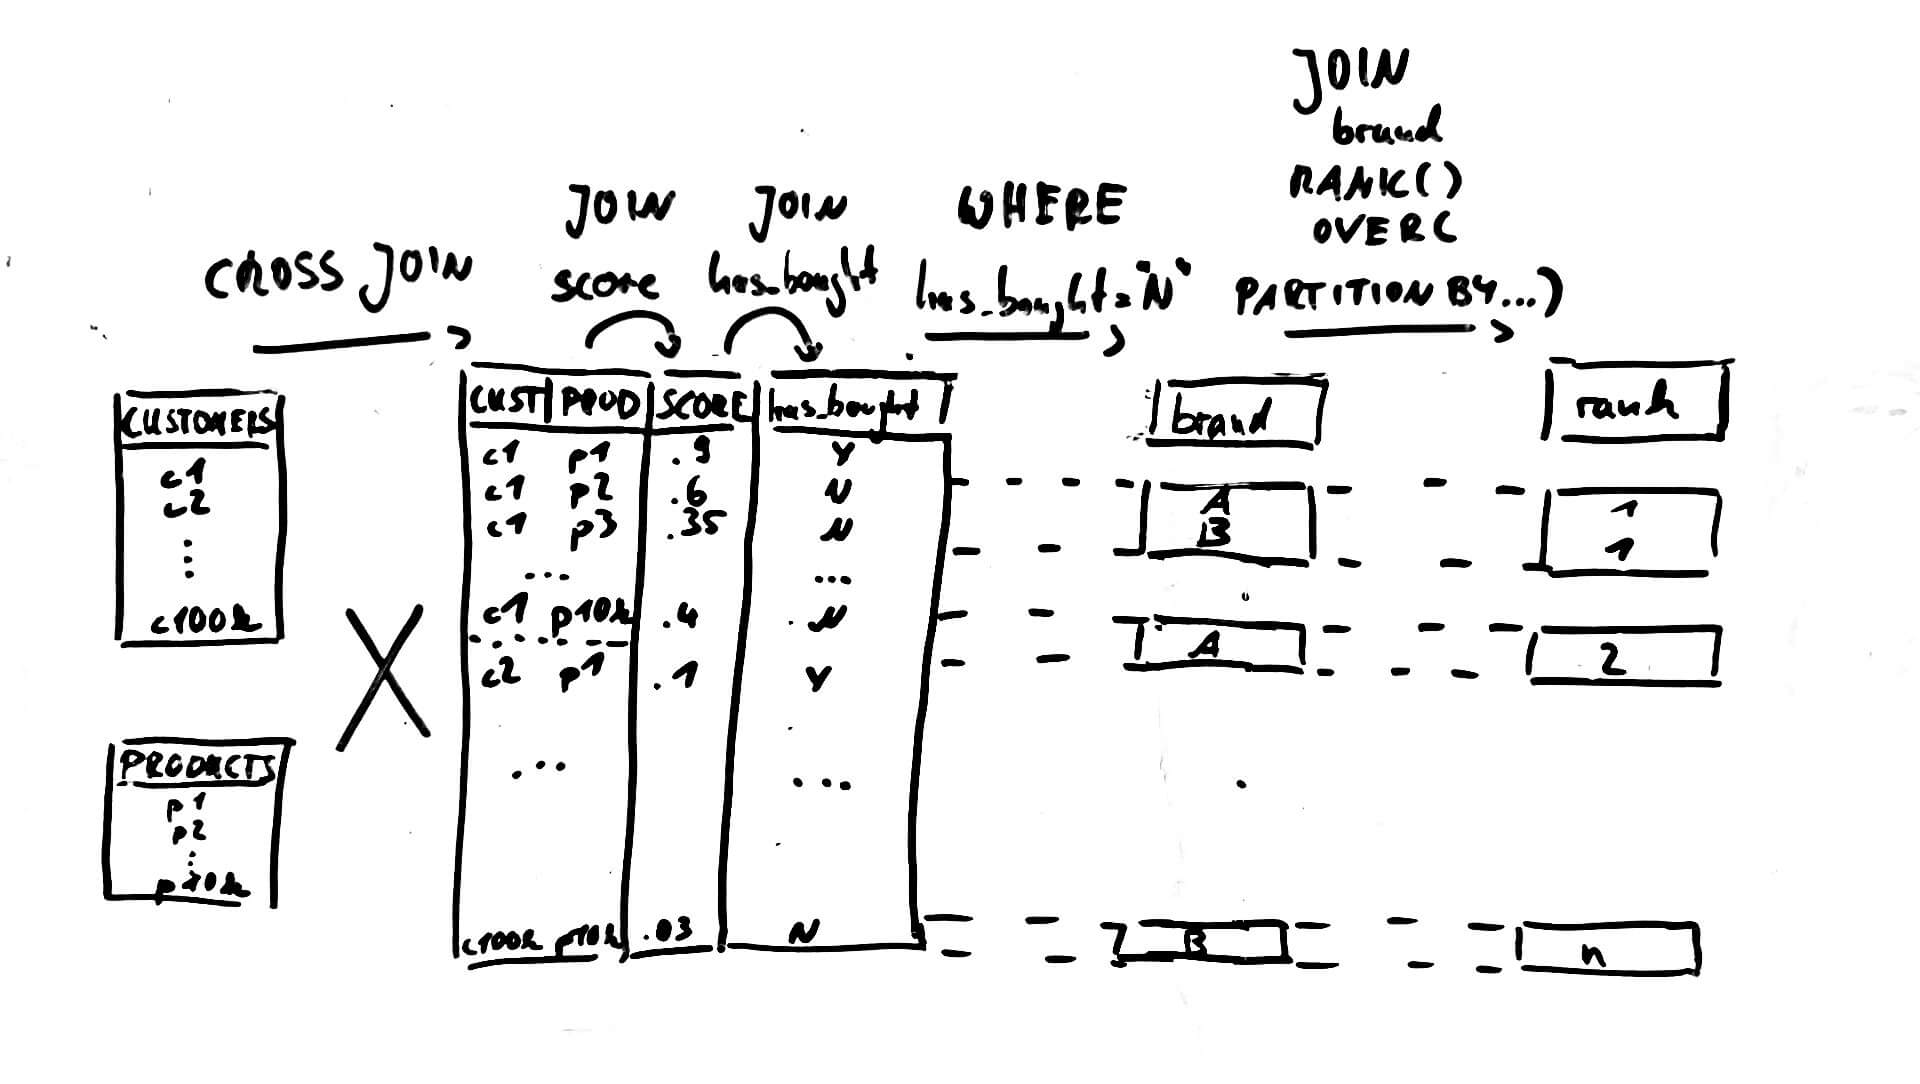 JOIN
brand
RANK()
OVER(
PARTITION BY...)
WHERE
has_bought="N"
JOIN
has_bought
JOIN
score
CROSS JOIN
CUSTOMERS
c1
c2
...
c100k
X
PRODUCTS
p1
p2
...
p10k
CUST PROD SCORE has_bought brand rank
c1 p1 .9 Y
c1 p2 .6 N A 1
c1 p3 .35 N B 1
... ...
c1 p10k .4 N A 2
c2 p1 .1 Y
... ...
c100k p10k .03 N B n